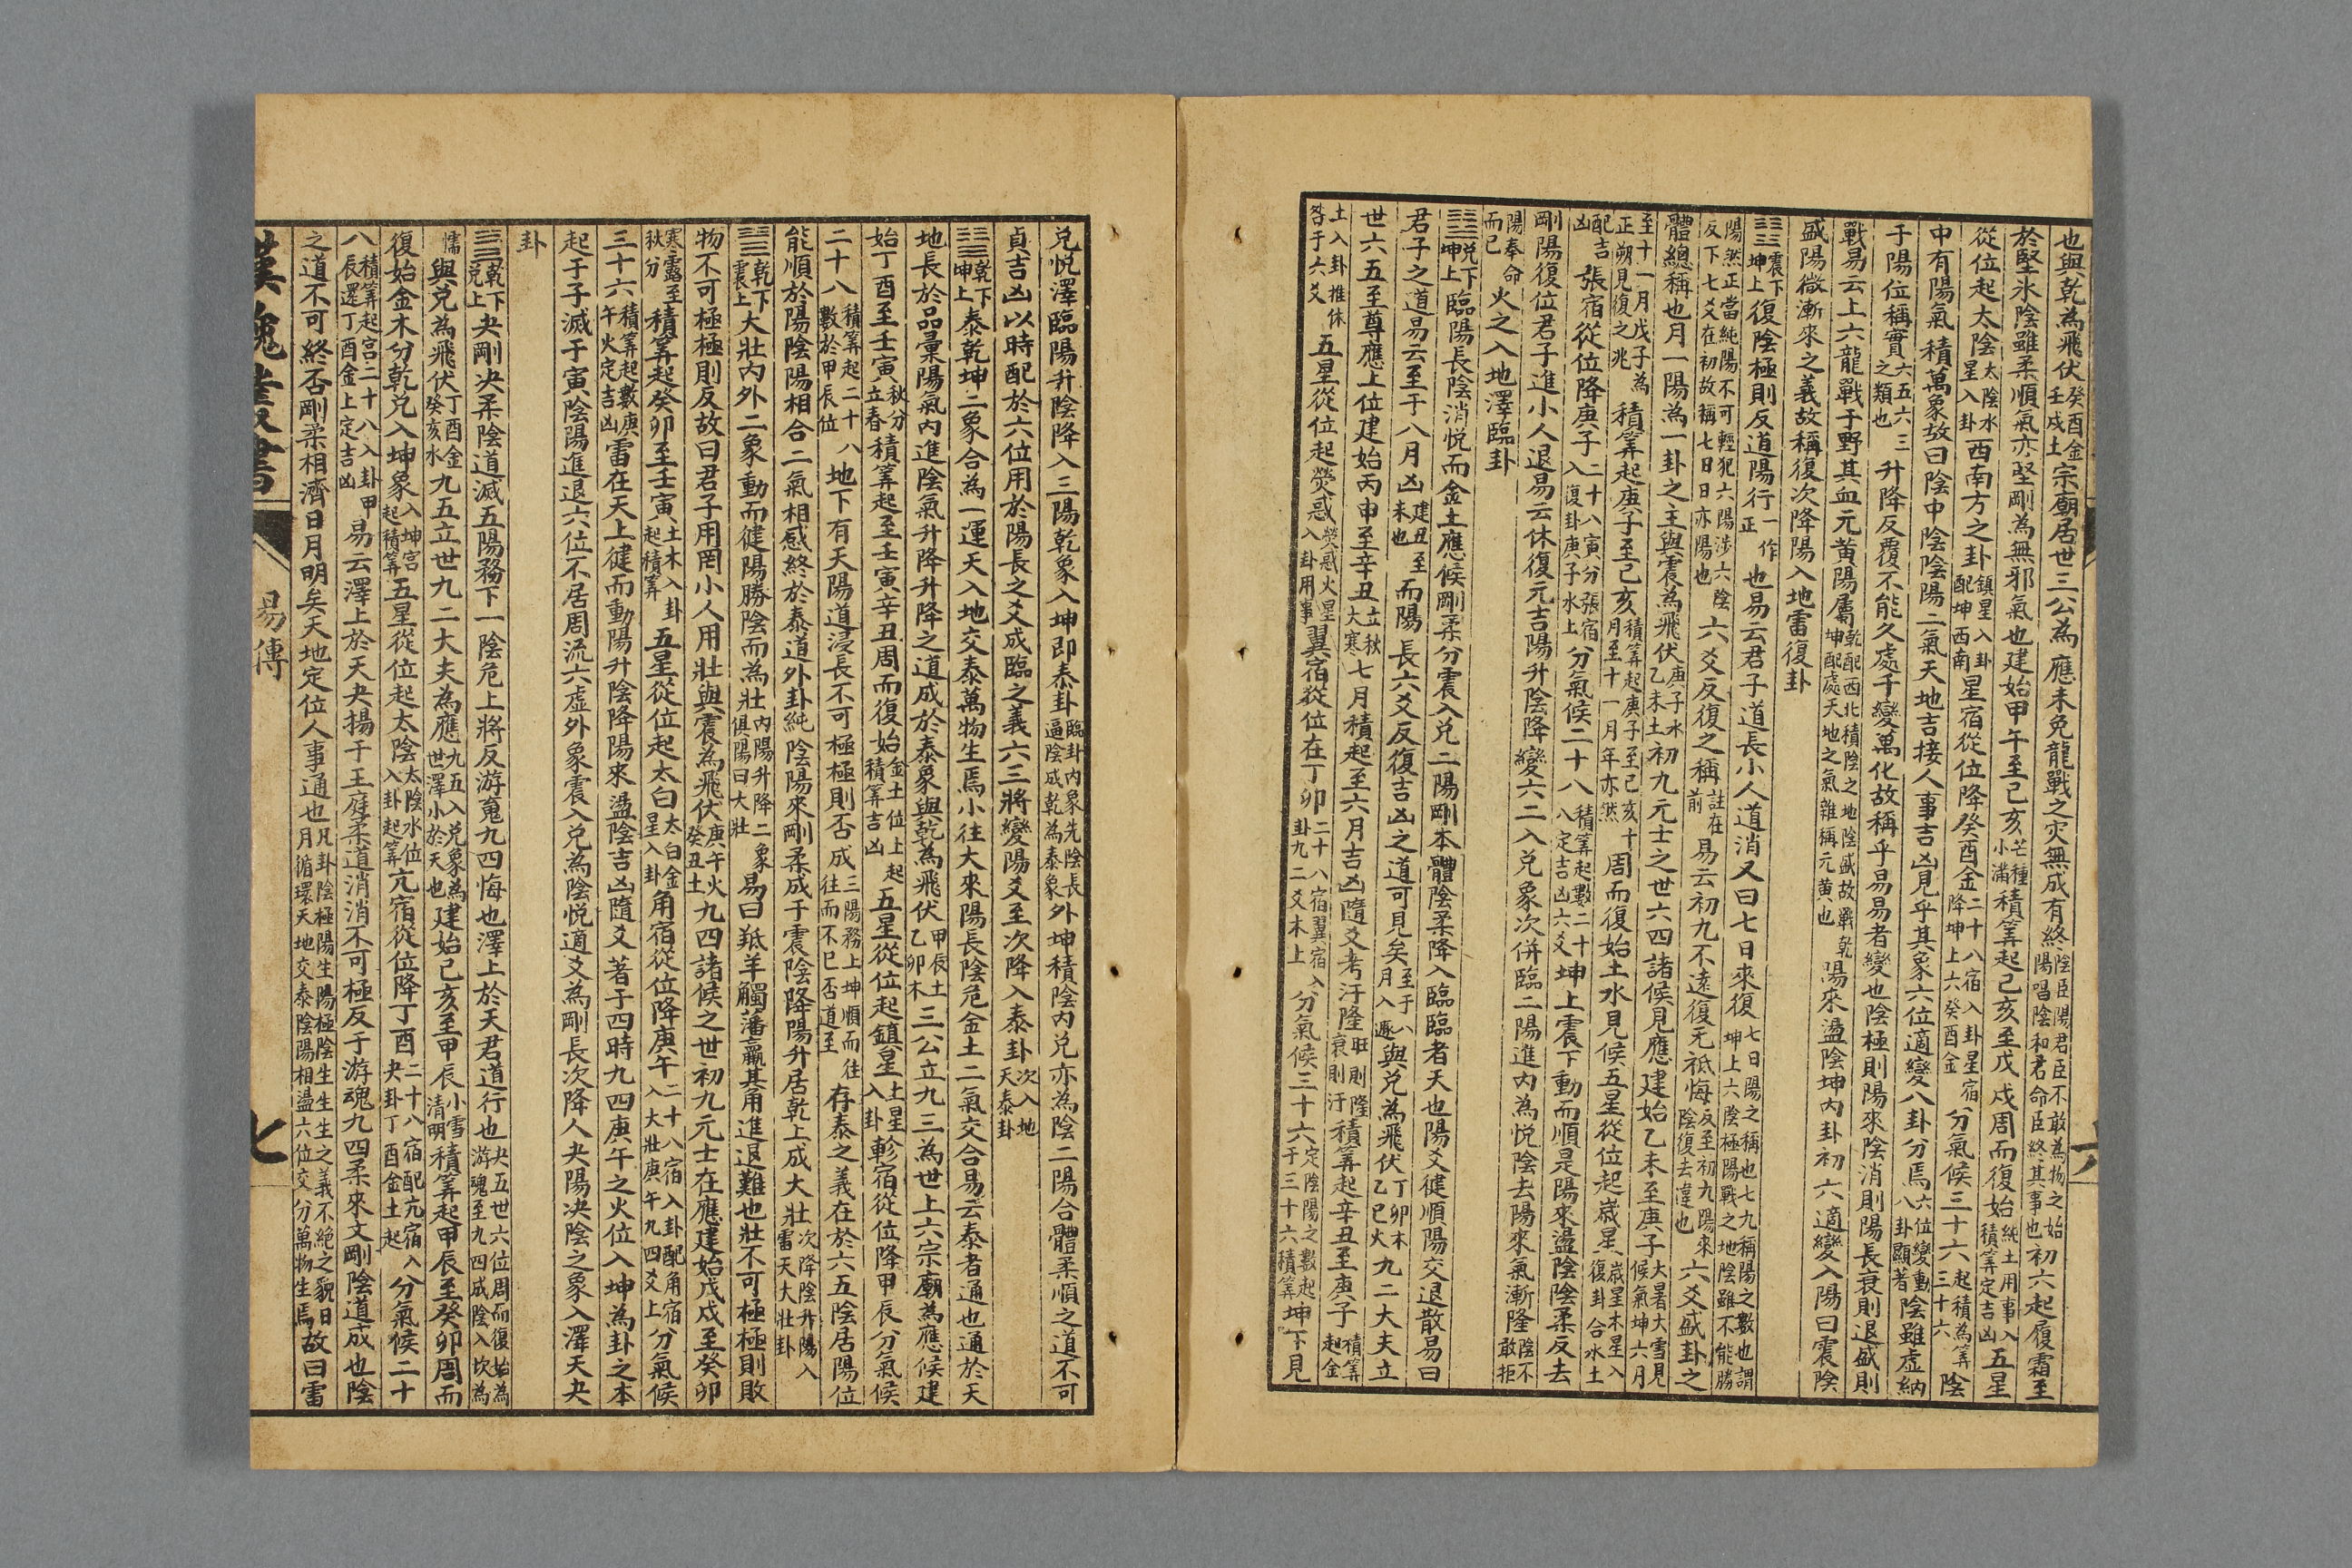 也與乾為飛伏癸酉金壬戌土宗廟居世三公為應未免龍戰之灾無成有終陰臣陽君臣不敢為物之始陽唱陰和君命臣終其事也初六起履霜至
於堅氷陰雖柔順氣亦堅剛為無邪氣也建始甲午至己亥芒種小滿積筭起己亥至戊戌周而復始純土用事入積筭定吉凶五星
從位起太陰太陰水星入卦西南方之卦鎮星入卦配坤西南星宿從位降癸酉金二十八宿入卦星宿降坤上六癸酉金分氣候三十六起積為筭三十六陰
中有陽氣積萬象故曰陰中陰陰陽二氣天地吉接人事吉凶見乎其象六位適變八卦分焉六位變動八卦顯著陰雖虛納
于陽位稱實六五六三之類也升降反覆不能久處千變萬化故稱乎易易者變也陰極則陽來陰消則陽長衰則退盛則
戰易云上六龍戰于野其血元黄陽屬乾配西北積陰之地陰盛故戰乾坤配處天地之氣雜稱元黄也陽來盪陰坤內卦初六適變入陽曰震陰
盛陽微漸來之義故稱復次降陽入地雷復卦
䷗震下坤上復陰極則反道陽行一作正也易云君子道長小人道消又曰七日來復七日陽之稱也七九稱陽之數也謂坤上六陰極陽戰之地陰雖不能勝
陽然正當純陽不可輕犯六陽涉六陰反下七爻在初故稱七日日亦陽也六爻反復之稱註在前易云初九不遠復无祇悔反至初九陽來陰復去違也六爻盛卦之
體總稱也月一陽為一卦之主與震為飛伏庚子水乙未土初九元士之世六四諸候見應建始乙未至庚子大暑大雪見候氣坤六月
至十一月戊子為正朔見復之兆積筭起庚子至己亥積筭起庚子至己亥十月至十一月年亦然周而復始土水見候五星從位起歲星歲星木星入復卦合水土
配吉凶張宿從位降庚子二十八寅分張宿入復卦庚子水上分氣候二十八積筭起數二十八定吉凶六爻坤上震下動而順是陽來盪陰陰柔反去
剛陽復位君子進小人退易云休復元吉陽升陰降變六二入兌象次併臨二陽進內為悦陰去陽來氣漸隆陰不敢拒
陽奉命而已火之入地澤臨卦
䷒兌下坤上臨陽長陰消悦而金土應候剛柔分震入兌二陽剛本體陰柔降入臨臨者天也陽爻健順陽交退散易曰
君子之道易云至于八月凶建丑至未也而陽長六爻反復吉凶之道可見矣至于八月入遯與兌為飛伏丁卯木乙巳火九二大夫立
世六五至尊應上位建始丙申至辛丑立秋大寒七月積起至六月吉凶隨爻考汙隆旺則隆衰則汙積筭起辛丑至庚子積筭起金
土入卦推休咎于六爻五星從位起熒惑熒惑火星入卦用事翼宿從位在丁卯二十八宿翼宿入卦九二爻木上分氣候三十六定陰陽之數起于三十六積筭坤下見
兌悦澤臨陽升陰降入三陽乾象入坤即泰卦臨卦内象先陰長逼陰成乾為泰象外坤積陰内兌亦為陰二陽合體柔順之道不可
貞吉凶以時配於六位用於陽長之爻成臨之義六三將變陽爻至次降入泰卦次入地天泰卦
䷊乾下坤上泰乾坤二象合為一運天入地交泰萬物生焉小往大來陽長陰危金土二氣交合易云泰者通也通於天
地長於品彙陽氣内進陰氣升降升降之道成於泰象與乾為飛伏甲辰土乙卯木三公立九三為世上六宗廟為應候建
始丁酉至壬寅秋分立春積筭起至壬寅辛丑周而復始金土位上起積筭吉凶五星從位起鎮星土星入卦軫宿從位降甲辰分氣候
二十八積筭起二十八數於甲辰位地下有天陽道浸長不可極極則否成三陽務上坤順而往往而不已否道至存泰之義在於六五陰居陽位
能順於陽陰陽相合二氣相感終於泰道外卦純陰陽來剛柔成于震陰降陽升居乾上成大壯次降陰升陽入雷天大壯卦
䷡乾下震上大壯內外二象動而健陽勝陰而為壯內陽升降二象俱陽曰大壯易曰羝羊觸藩羸其角進退難也壯不可極極則敗
物不可極極則反故曰君子用罔小人用壯與震為飛伏庚午火癸丑土九四諸候之世初九元士在應建始戊戌至癸卯
寒露至秋分積筭起癸卯至壬寅土木入卦起積筭五星從位起太白太白金星入卦角宿從位降庚午二十八宿入卦配角宿入大壯庚午九四爻上分氣候
三十六積筭起數庚午火定吉凶雷在天上健而動陽升陰降陽來盪陰吉凶隨爻著于四時九四庚午之火位入坤為卦之本
起于子滅于寅陰陽進退六位不居周流六虛外象震入兌為陰悦適爻為剛長次降人夬陽决陰之象入澤天夬
卦
䷪乾下兌上夬剛决柔陰道滅五陽務下一陰危上將反游䰟九四悔也澤上於天君道行也夬五世六位周而復始為游魂至九四成陰入坎為
懦與兌為飛伏丁酉金癸亥水九五立世九二大夫為應九五入兌象為世澤小於天也建始己亥至甲辰小雪清明積筭起甲辰至癸卯周而
復始金木分乾兌入坤象入坤宮起積筭五星從位起太陰太陰水位入卦起筭亢宿從位降丁酉二十八宿配亢宿入夬卦丁酉金土起分氣候二十
八積筭起宮二十八入卦甲辰還丁酉金上定吉凶易云澤上於天夬揚于王庭柔道消消不可極反于游魂九四柔來文剛陰道成也陰
之道不可終否剛柔相濟日月明矣天地定位人事通也凡卦陰極陽生陽極陰生生生之義不絶之貌日月循環天地交泰陰陽相盪六位交分萬物生焉故曰雷
漢魏叢書
易傳
七